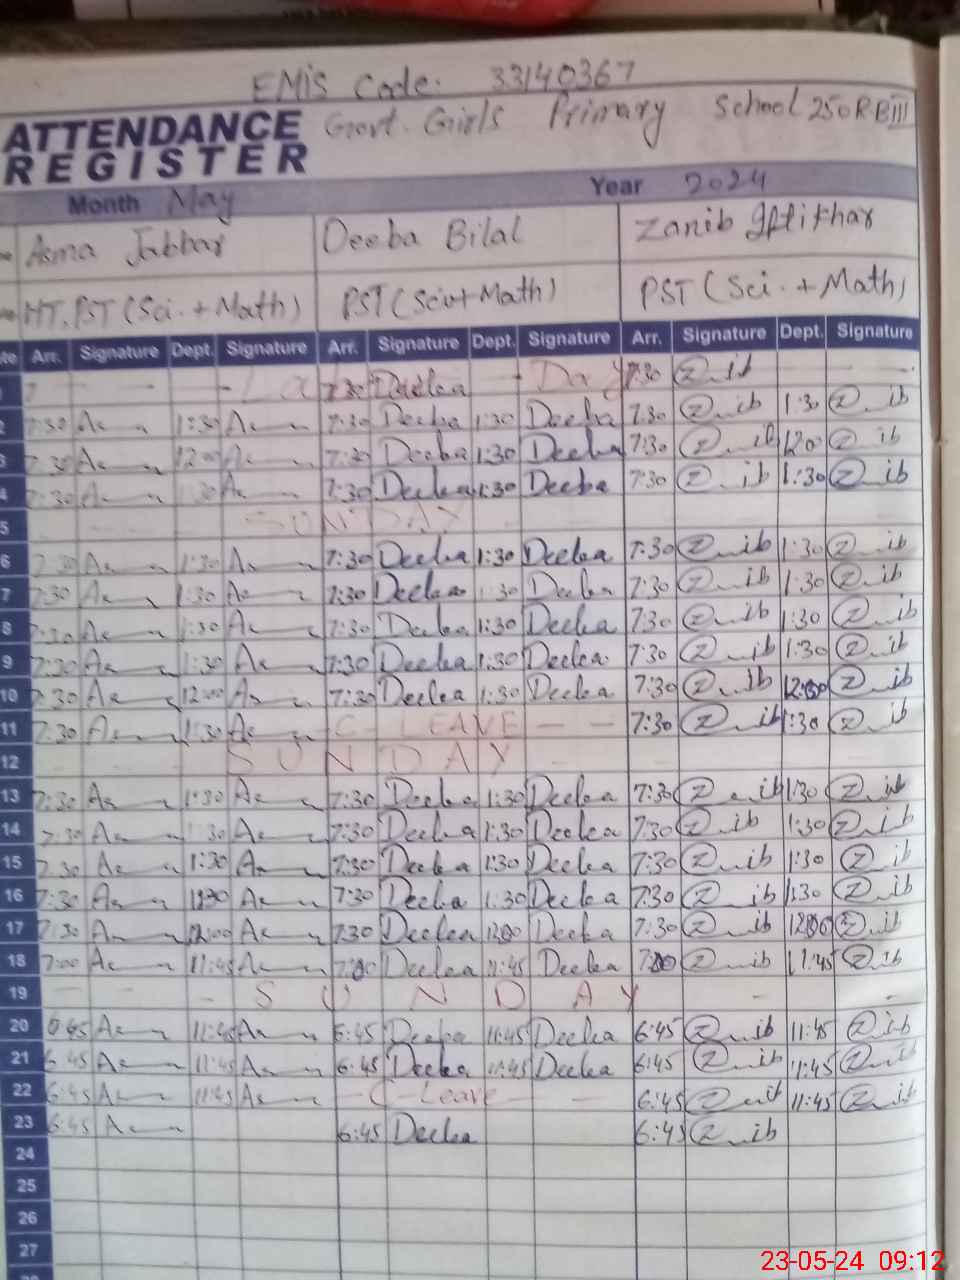 EMIS Code: 33140367
ATTENDANCE REGISTER Govt. Girls Primary School 250 R-B III
Month May Year 2024
Asma Jabbar Deeba Bilal Zanib Iftikhar
HT, PST (Sci. + Math) PST (Sci + Math) PST (Sci. + Math)
Arr. Signature Dept. Signature Arr. Signature Dept. Signature Arr. Signature Dept. Signature
7:30 Deeba - Day 7:30 Z ib
2 7:30 As 1:30 As 7:30 Deeba 1:30 Deeba 7:30 Z ib 1:30 Z ib
7:30 As 12:00 As 7:30 Deeba 1:30 Deeba 7:30 Z ib 12:00 Z ib
7:30 As 1:30 As 7:30 Deeba 1:30 Deeba 7:30 Z ib 1:30 Z ib
5 SUNDAY
6 7:30 As 1:30 As 7:30 Deeba 1:30 Deeba 7:30 Z ib 1:30 Z ib
7 7:30 As 1:30 As 7:30 Deeba 1:30 Deeba 7:30 Z ib 1:30 Z ib
8 7:30 As 1:30 As 7:30 Deeba 1:30 Deeba 7:30 Z ib 1:30 Z ib
9 7:30 As 1:30 As 7:30 Deeba 1:30 Deeba 7:30 Z ib 1:30 Z ib
10 7:30 As 12:00 As 7:30 Deeba 1:30 Deeba 7:30 Z ib 12:00 Z ib
11 7:30 As 1:30 As C- LEAVE - - 7:30 Z ib 1:30 Z ib
12 SUNDAY
13 7:30 As 1:30 As 7:30 Deeba 1:30 Deeba 7:30 Z ib 1:30 Z ib
14 7:30 As 1:30 As 7:30 Deeba 1:30 Deeba 7:30 Z ib 1:30 Z ib
15 7:30 As 1:30 As 7:30 Deeba 1:30 Deeba 7:30 Z ib 1:30 Z ib
16 7:30 As 1:30 As 7:30 Deeba 1:30 Deeba 7:30 Z ib 1:30 Z ib
17 7:30 As 12:00 As 7:30 Deeba 12:00 Deeba 7:30 Z ib 12:00 Z ib
18 7:00 As 11:45 As 7:00 Deeba 11:45 Deeba 7:00 Z ib 11:45 Z ib
19 - - - SUNDAY - -
20 6:45 As 11:45 As 6:45 Deeba 11:45 Deeba 6:45 Z ib 11:45 Z ib
21 6:45 As 11:45 As 6:45 Deeba 11:45 Deeba 6:45 Z ib 11:45 Z ib
22 6:45 As 11:45 As - C- Leave - 6:45 Z ib 11:45 Z ib
23 6:45 As 6:45 Deeba 6:45 Z ib
24
25
26
27
23-05-24 09:12